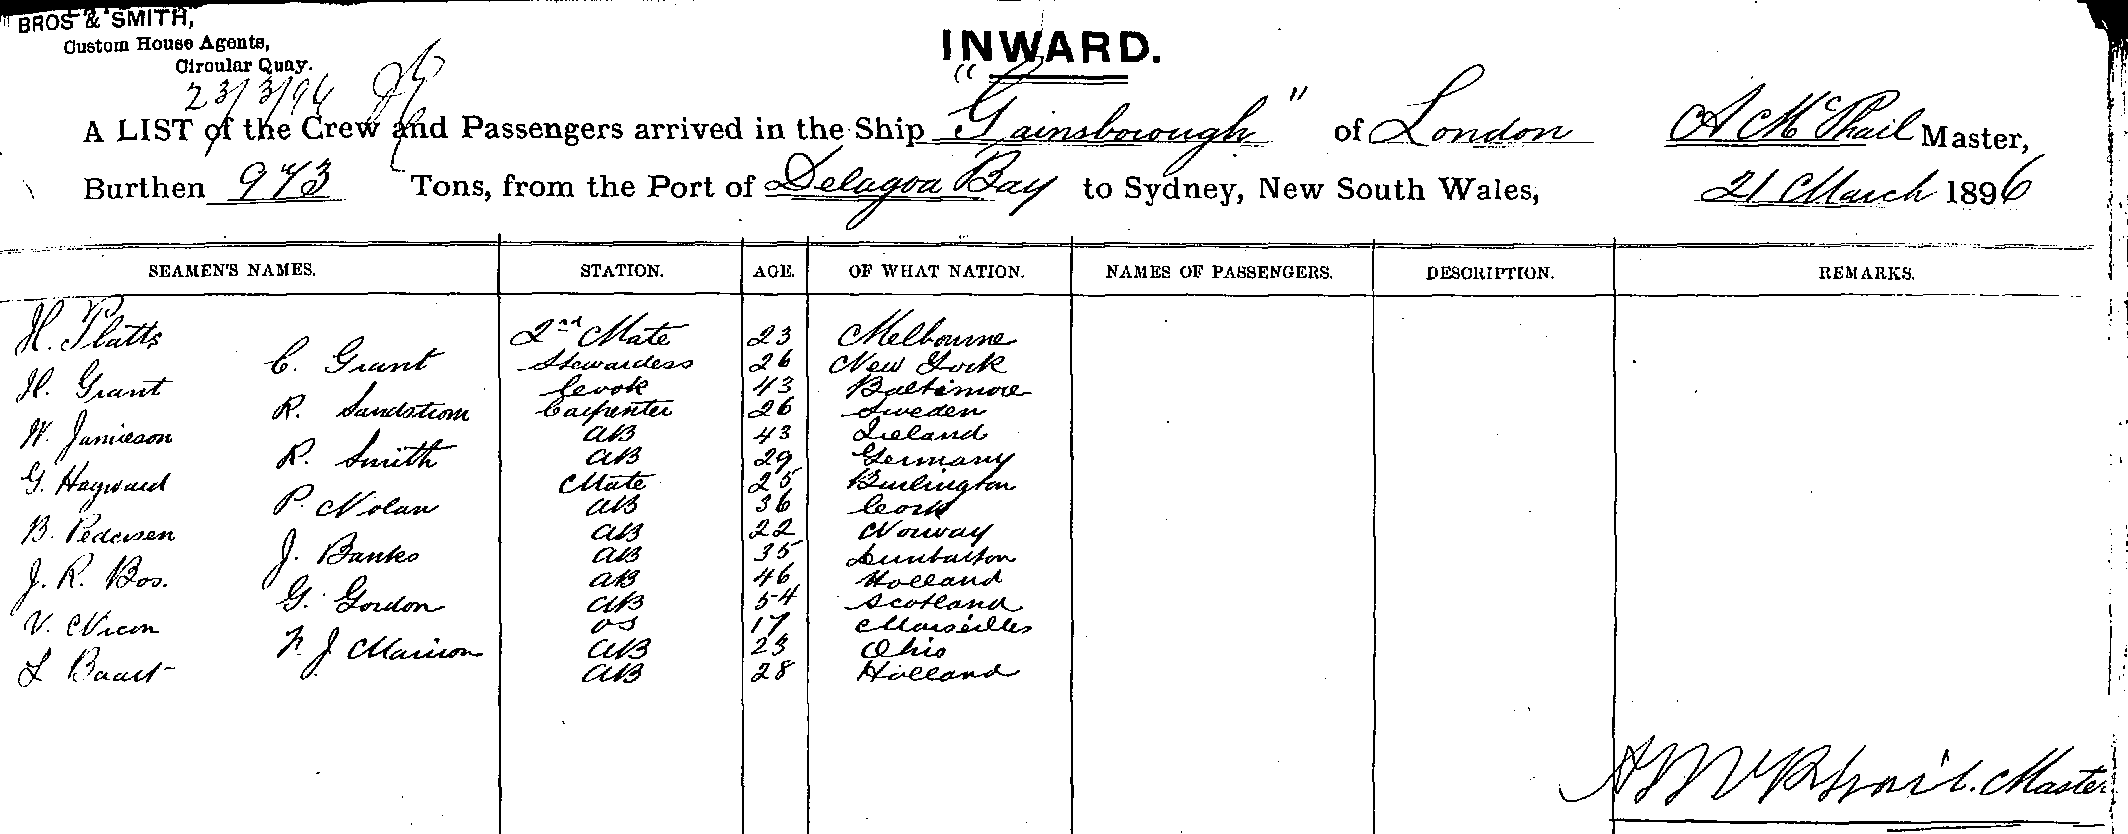 BROS & SMITH,
Custom House Agents,
Circular Quay.
23/3/96
INWARD.
A LIST of the Crew and Passengers arrived in the Ship "Gainsborough" of London A McPhail Master,
Burthen 973 Tons, from the Port of Delagoa Bay to Sydney, New South Wales, 21 March 1896
SEAMEN'S NAMES. STATION. AGE. OF WHAT NATION. NAMES OF PASSENGERS. DESCRIPTION. REMARKS.
H. Platts 2nd Mate 23 Melbourne
C. Grant Stewardess 26 New York
H. Grant Cook 43 Baltimore
R. Sandstrom Carpenter 26 Sweden
W. Jamieson AB 43 Ireland
R. Smith AB 29 Germany
G. Hayward Mate 25 Burlington
P. Nolan AB 36 Cork
B. Pedersen AB 22 Norway
J. Banks AB 35 Dumbarton
J. R. Bos. AB 46 Holland
G. Gordon AB 54 Scotland
V. Nicon OS 17 Marseilles
F. J. Marison AB 23 Ohio
L Baart AB 28 Holland
A McPhail. Master